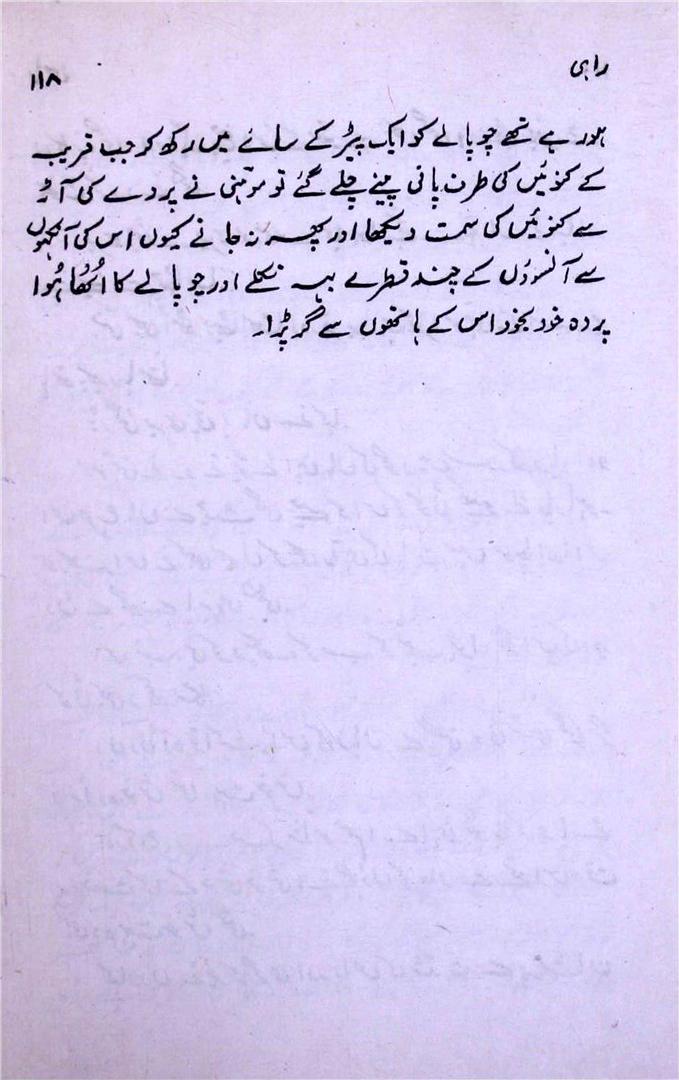 راہی
۱۱۸
ہو رہے تھے چوپالے کو ایک پیڑ کے سائے میں رکھ کر جب قریب
کے کنوئیں کی طرف پانی پینے چلے گئے تو موتہنی نے پردے کی آڑ
سے کنوئیں کی سمت دیکھا اور پھر نہ جانے کیوں اس کی آنکھوں
سے آنسوؤں کے چند قطرے بہہ نکلے اور چوپالے کا اُٹھا ہُوا
پردہ خود بخود اس کے ہاتھوں سے گر پڑا۔